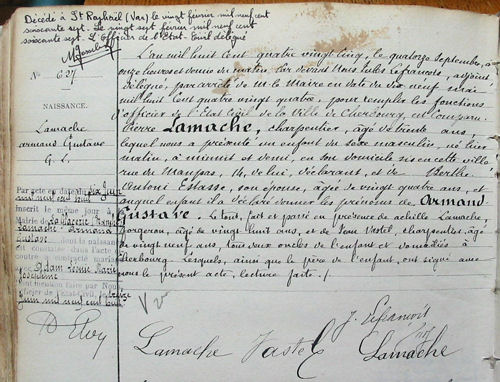 Décédé à St Raphaël (Var) le vingt février mil neuf cent
soixante sept. Le vingt sept février mil neuf cent
soixante sept. L'Officier de l'Etat-Civil délégué
N° 627
NAISSANCE.
Lamache
Armand Gustave
G. L.
Par acte en date du dix juin
mil neuf cent huit
inscrit le même jour à
Mairie de
Lamache Armand
Gustave dont la naissance
est constatée dans l'acte
ci-contre a contracté mariage
avec Adam Jeanne Marie
Joséphine
Mention faite par Nous
Officier de l'Etat-Civil, le
juin mil neuf cent huit
L'an mil huit cent quatre vingt cinq, le quatorze Septembre, à
onze heures et demie du matin, Par devant Nous Jules Lefrançois, adjoint
délégué, par arrêté de M. le Maire en date du dix neuf mai
mil huit cent quatre vingt quatre, pour remplir les fonctions
d'officier de l'Etat Civil de la Ville de Cherbourg, est comparu
Pierre Lamache, charpentier, âgé de trente ans,
lequel nous a présenté un enfant du sexe masculin, né hier
matin, à minuit et demi, en son domicile sis en cette ville
rue du Maupas, 14, de lui, déclarant, et de Berthe
Antoni Estasse, son épouse, âgée de vingt quatre ans, et
auquel enfant il a déclaré donner les prénoms de Armand
Gustave. Le tout, fait et passé en présence de Achille Lamache,
forgeron, âgé de vingt huit ans, et de Jean Vastel, charpentier, âgé
de vingt neuf ans, tous deux oncles de l'enfant et domiciliés à
Cherbourg. Lesquels, ainsi que le père de l'enfant, ont signé avec
nous le présent acte, lecture faite.
J. Lefrançois
Lamache Vastel Lamache